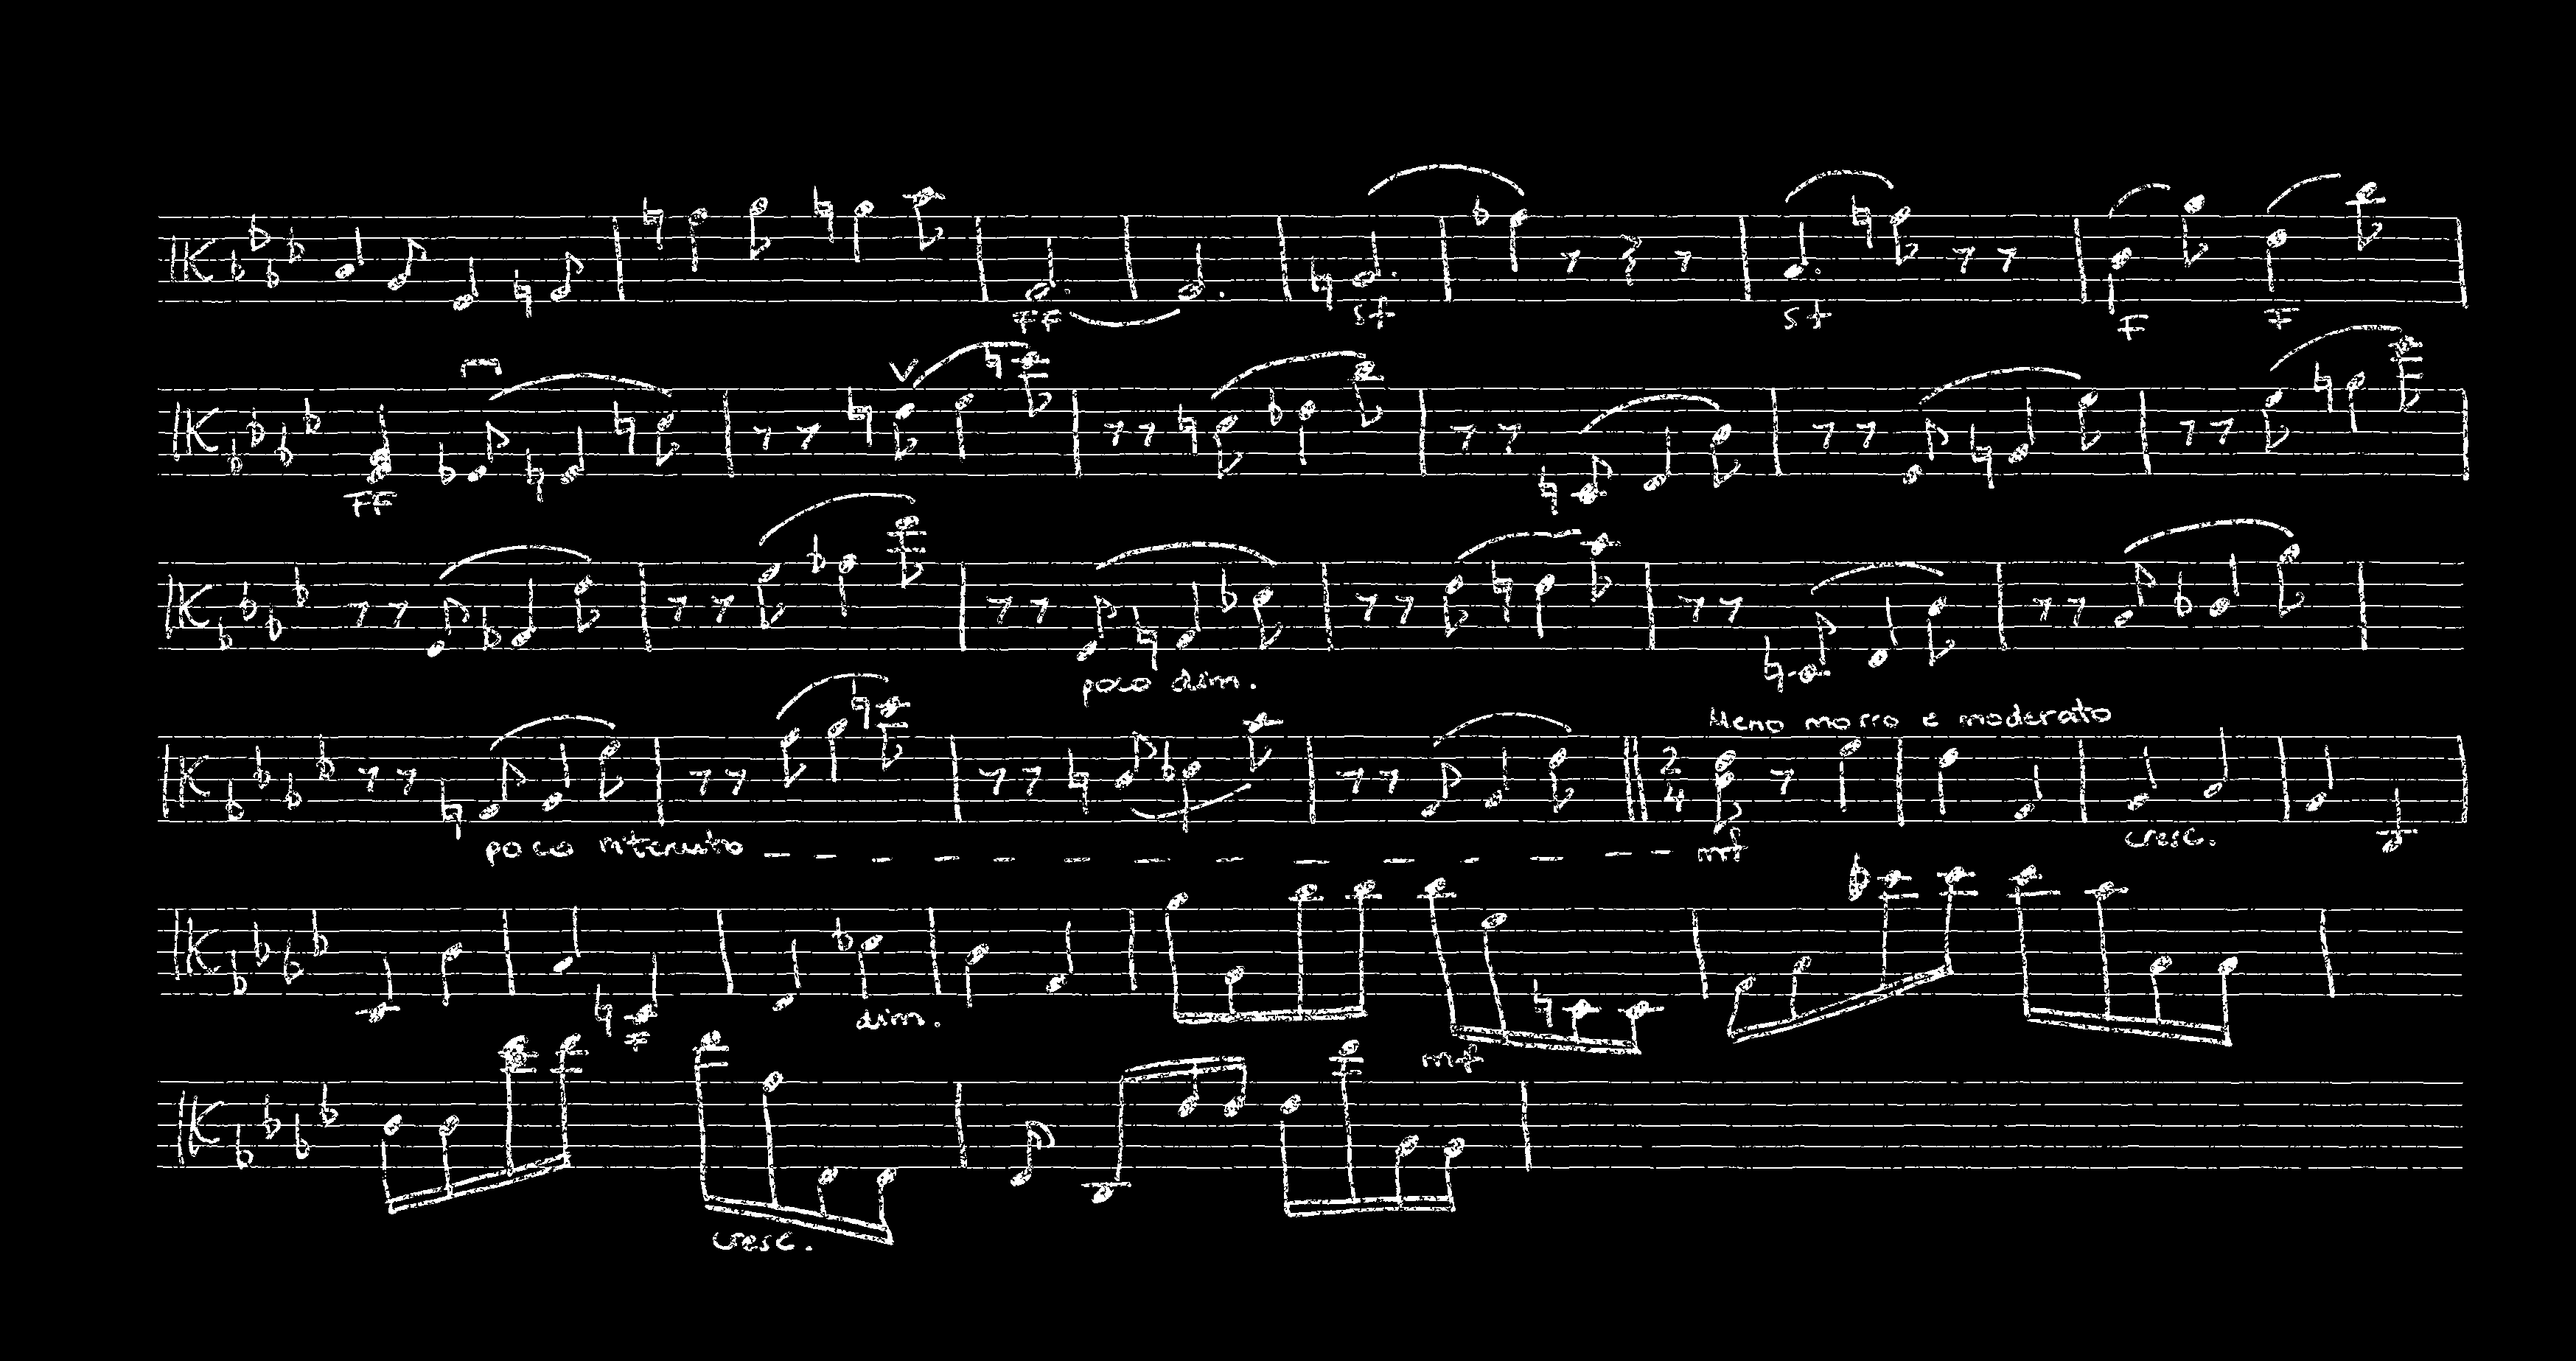 FF sf sf F F
FF
poco dim.
Meno mosso e moderato
2 4
poco ritenuto mf
cresc.
dim.
mf
cresc.